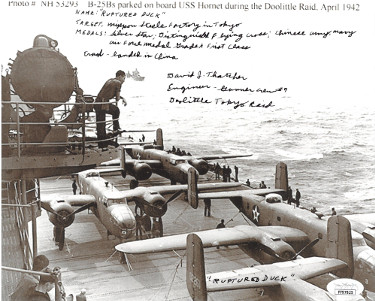 Photo # NH 53293 B-25Bs parked on board USS Hornet during the Doolittle Raid, April 1942
NAME: "RUPTURED DUCK"
TARGET: Nippon Steele Factory in Tokyo
MEDALS: Silver Star, Distinguish Flying Cross, Chinese Army, Navy
Air Force medal Grade A First Class
Crash-landed in China
David J. Thatcher
Engineer - Gunner
Doolittle Tokyo Raid
"RUPTURED DUCK"
JSA